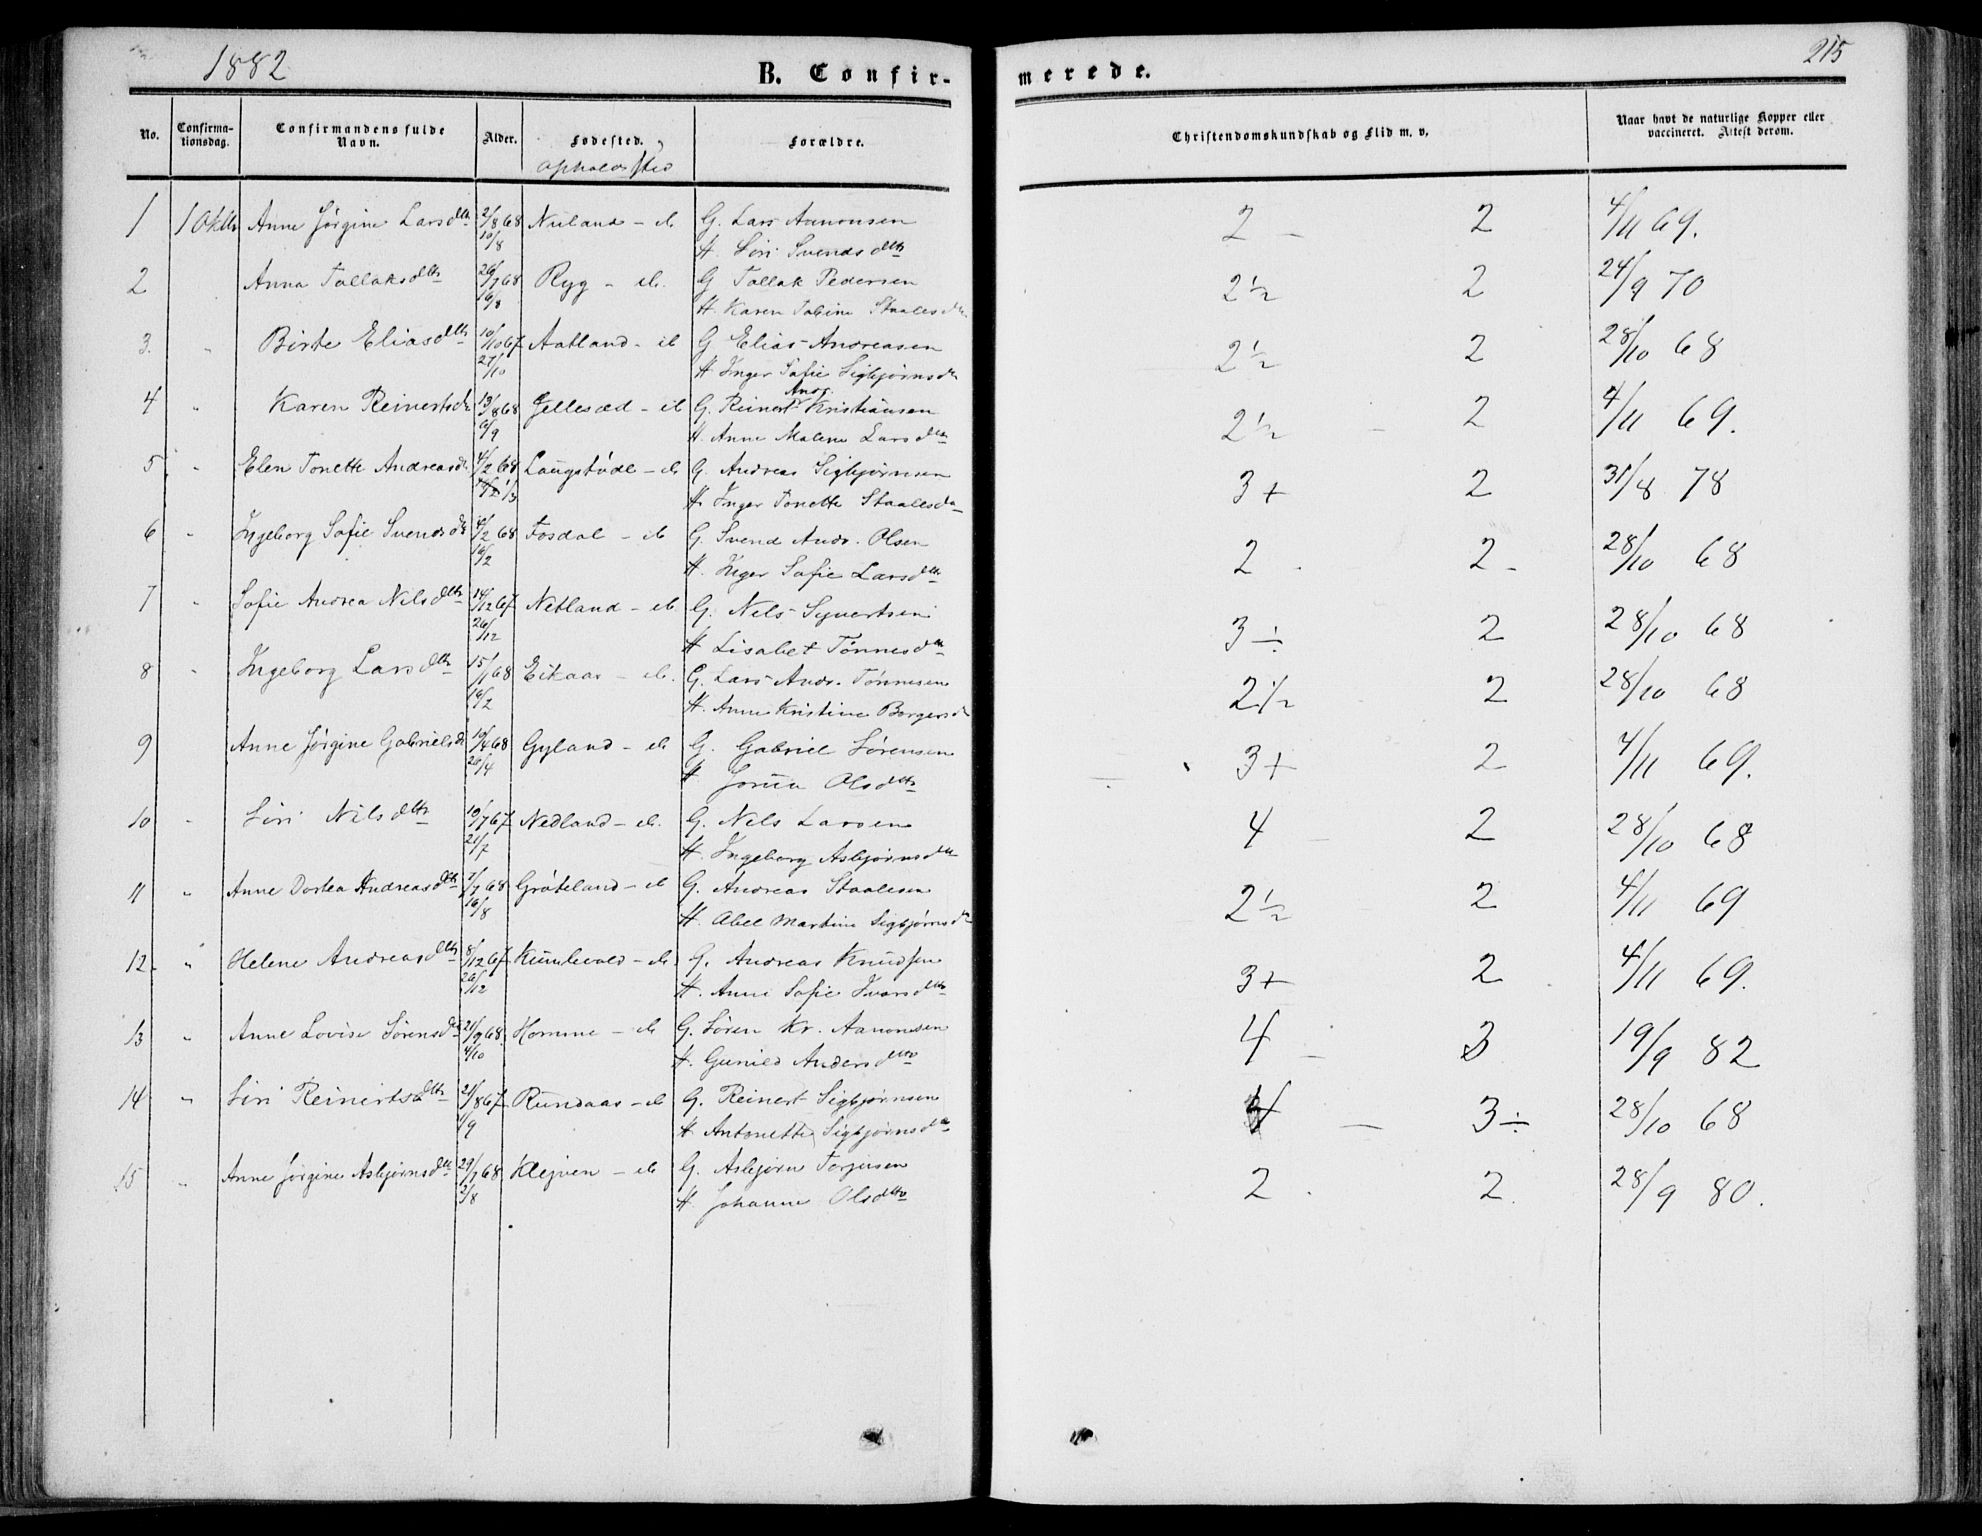 1882
B. Confir-
merede.
215
No.
Confirma-
tionsdag.
Confirmandens fulde
Navn.
Alder.
Fødested.
opholdssted
Forældre.
Christendomskundskab og Flid m. v.
Naar havt de naturlige Kopper eller
vaccineret. Attest derom.
1 1 Oktbr Anne Jørgine Larsdttr 2/8 68 Nuland - ib G. Lars Aanonsen 2 - 2 4/11 69.
10/8 H. Siri Svendsdttr
2 Anna Tallaksdttr 26/7 68 Ryg - ib. G Tallak Pedersen 2½ 2 24/9 70
16/8 H. Karen Tabine Staalesdtr
3. " Birte Eliasdttr 10/10 67 Aatland - ib G Elias Andreasen 2½ 2 28/10 68
27/10 H Inger Sofie Sigbjørnsdtr
Andr.
4 " Karen Reinertsdr 13/8 68 Gellesæd - ib G. Reinert Kristiansen 2½ - 2 4/11 69.
6/9 H. Anne Malene Larsdttr
5 " Elen Tonette Andreasdr 4/2 68 Laugstødl - ib G. Andreas Sigbjørnsen 3+ 2 31/8 78
1/3 H. Inger Tonette Staalesdtr
6 " Ingeborg Sofie Svendsdr 4/2 68 Fosdal - ib G. Svend Andr. Olsen 2 . 2 - 28/10 68
16/2 H. Inger Sofie Larsdttr
7 " Sofie Andrea Nilsdttr 14/12 67 Netland - ib G. Nels Syvertsen 3÷ 2 28/10 68
26/12 H Lisabet Tønnesdtr
8 " Ingeborg Larsdttr 15/1 68 Eikaas - ib. G. Lars Andr. Tønnesen 2½ 2 28/10 68
16/2 H. Anne Kristine Borgersd
9 Anne Jørgine Gabrielsdr 10/4 68 Gyland - ib G. Gabriel Sørensen 3+ 2 4/11 69.
26/4 H Jorun Olsdttr
10 " Siri Nilsdttr 10/7 67 Nedland - ib. G. Nels Larsen 4 - 2 28/10 68
21/7 H. Ingeborg Asbjørnsdtr
11 " Anne Dortea Andreasdttr 7/7 68 Grøteland - ib G. Andreas Staalesen 2½ 2 4/11 69
16/8 H. Abel Martine Sigbjørnsdtr
12 " Helene Andreasdttr 8/12 67 Kumlevold - ib G. Andreas Knudsen 3+ 2 4/11 69.
26/12 H. Anne Sofie Ivarsdttr
13 " Anne Lovise Sørensdtr 21/9 68. Homme - ib G. Søren Kr. Aanonsen 4 - 3 19/9 82
4/10 H. Gunild Andersdttr
14 " Siri Reinertsdttr 21/8 67 Rundaas - ib G. Reinert Sigbjørnsen 4 - 3÷ 28/10 68
1/9 H. Antonette Sigbjørnsdtr
15 " Anne Jørgine Asbjørnsdttr 29/7 68 Klejven - ib G. Asbjørn Torjusen 2 . 2. 28/9 80.
2/8 H Johanne Olsdttr